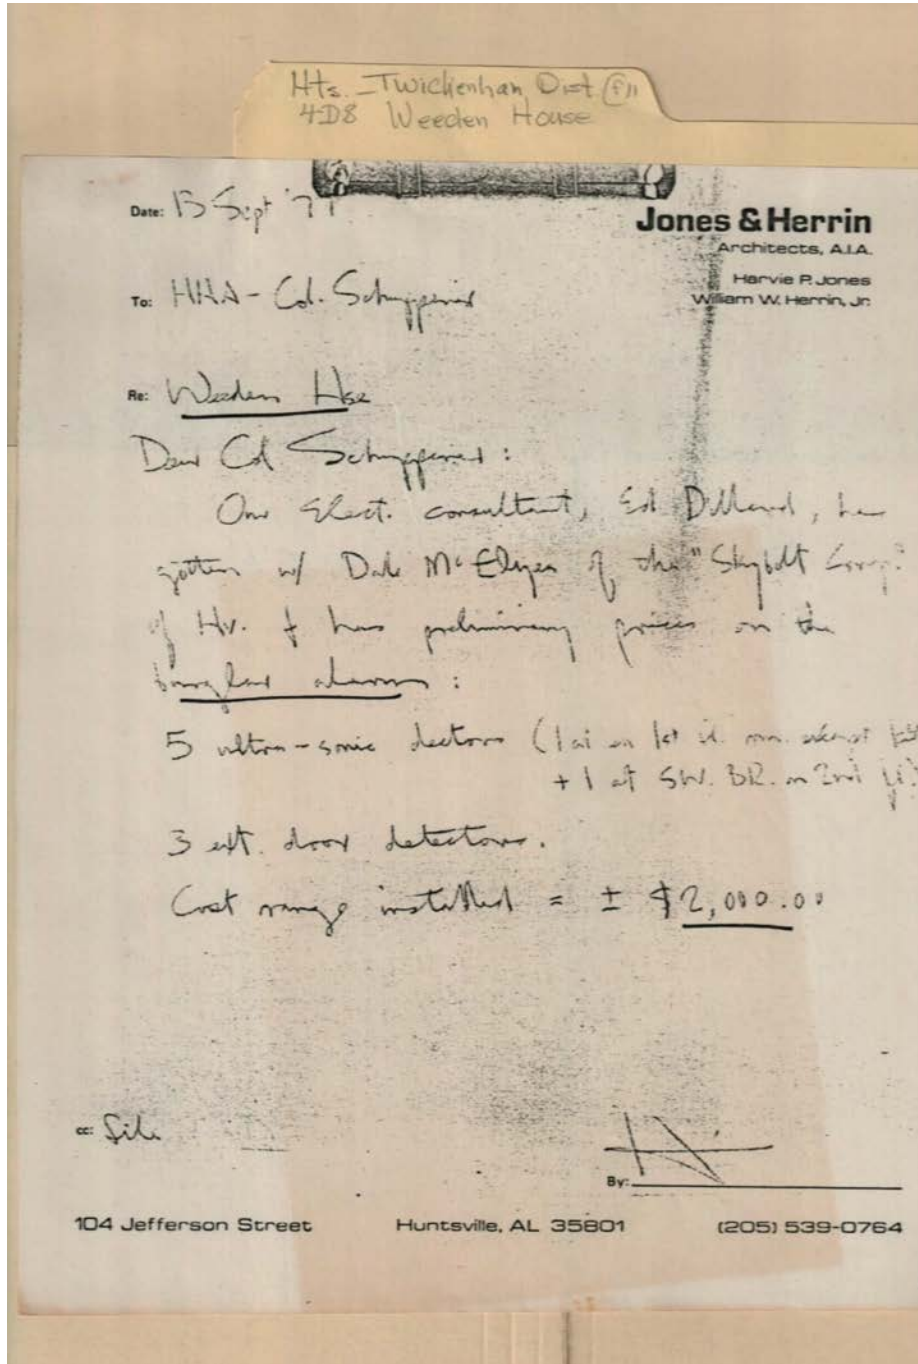 Hts. - Twickenham Dist.
4D8 Weeden House
Date: 13 Sept '77
Jones & Herrin
Architects, A.I.A.
Harvie P. Jones
William W. Herrin, Jr.
To: HHA - Col.
Re: Weeden Hse
Dear Col :
Our Elect. consultant, Ed Dillard, has
gotten w/ Dale of the "Skybolt Corp."
of Hv. & has preliminary prices on the
burglar alarm :
5 ultra-sonic dectors (1 at ea 1st fl. rm. except
+ 1 at SW. BR. on 2nd fl.)
3 ext. door detectors.
Cost range installed = ± $2,000.00
cc: file
By:
104 Jefferson Street Huntsville, AL 35801 (205) 539-0764